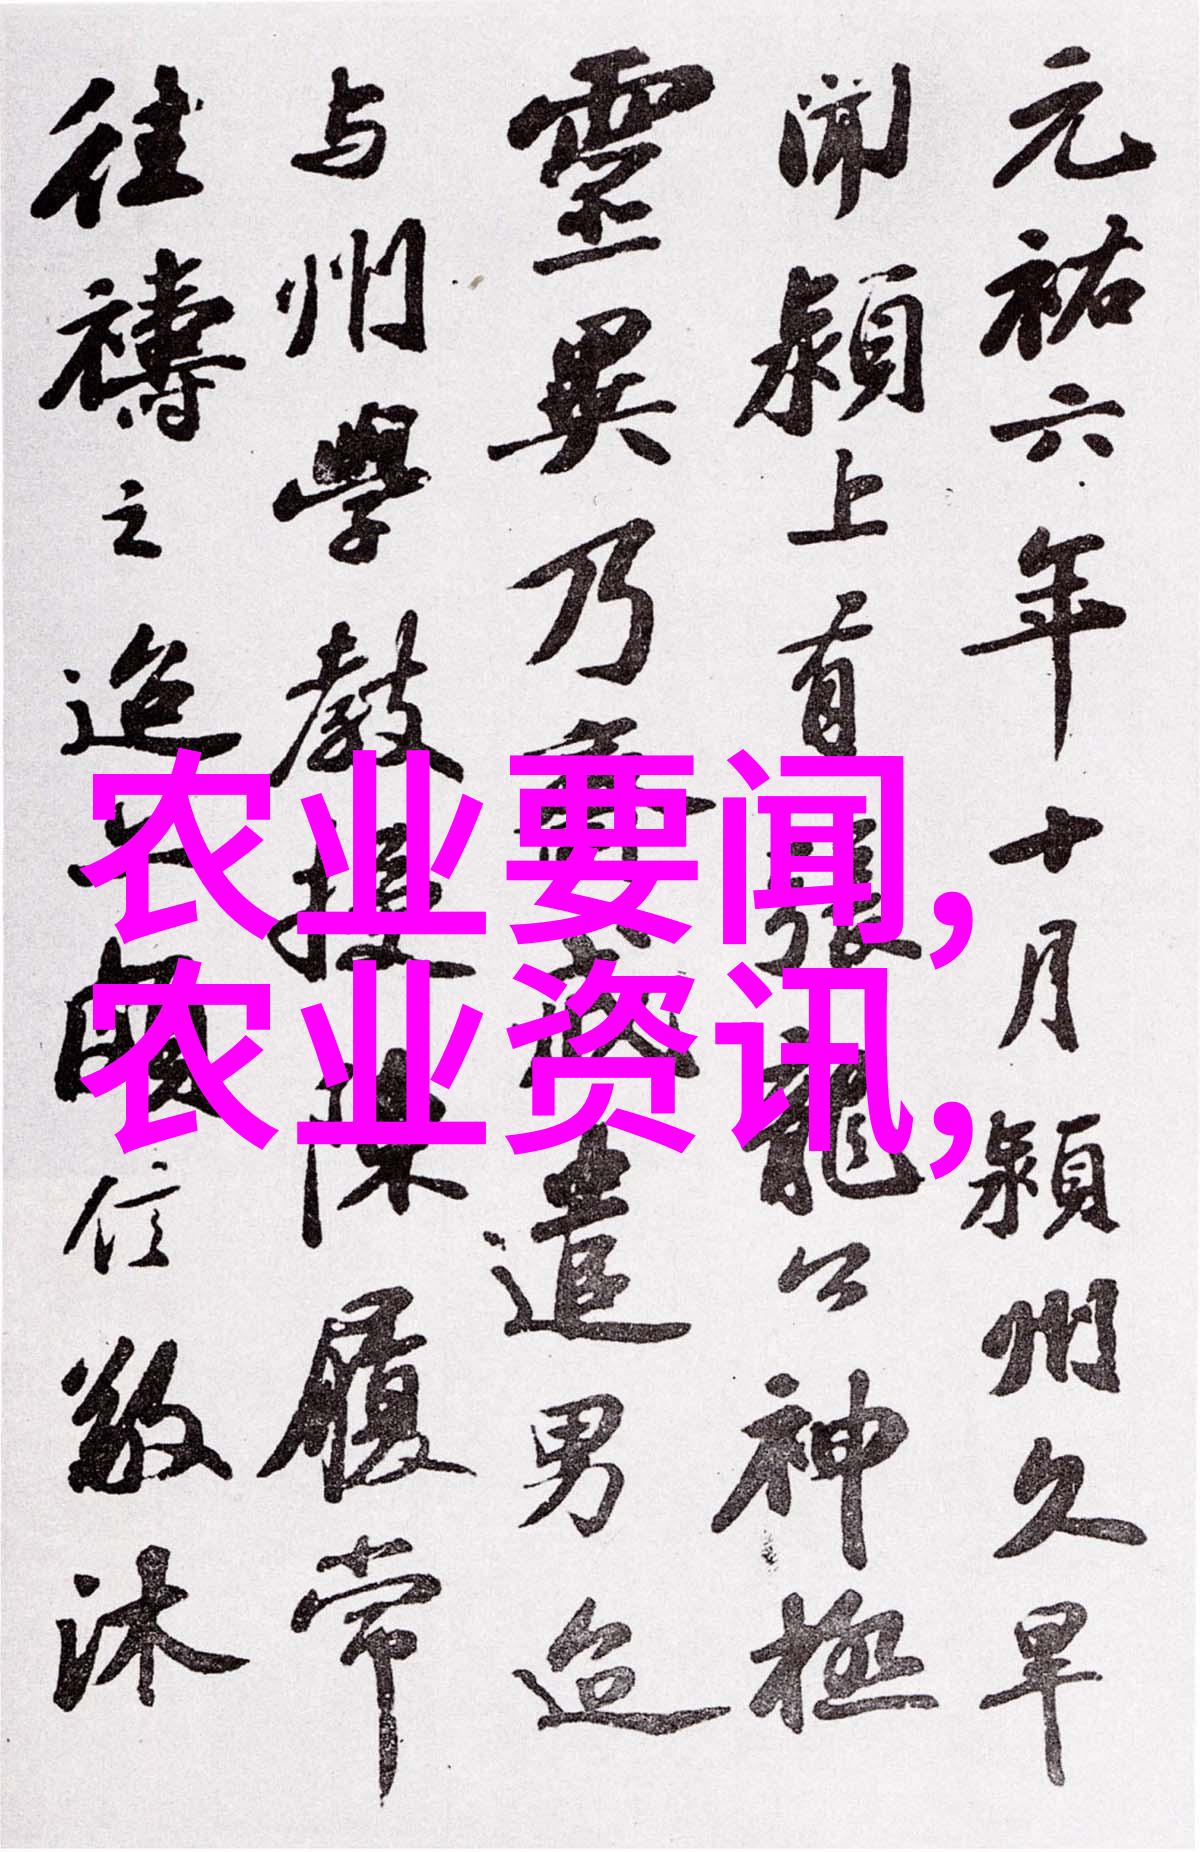 元祐六年十月潁州久旱
聞潁上有張龍公神極
靈異乃齋戒遣男迨
与州學教授陳履常
往禱之迨亦頗信敬沐
农业要闻,
农业资讯,